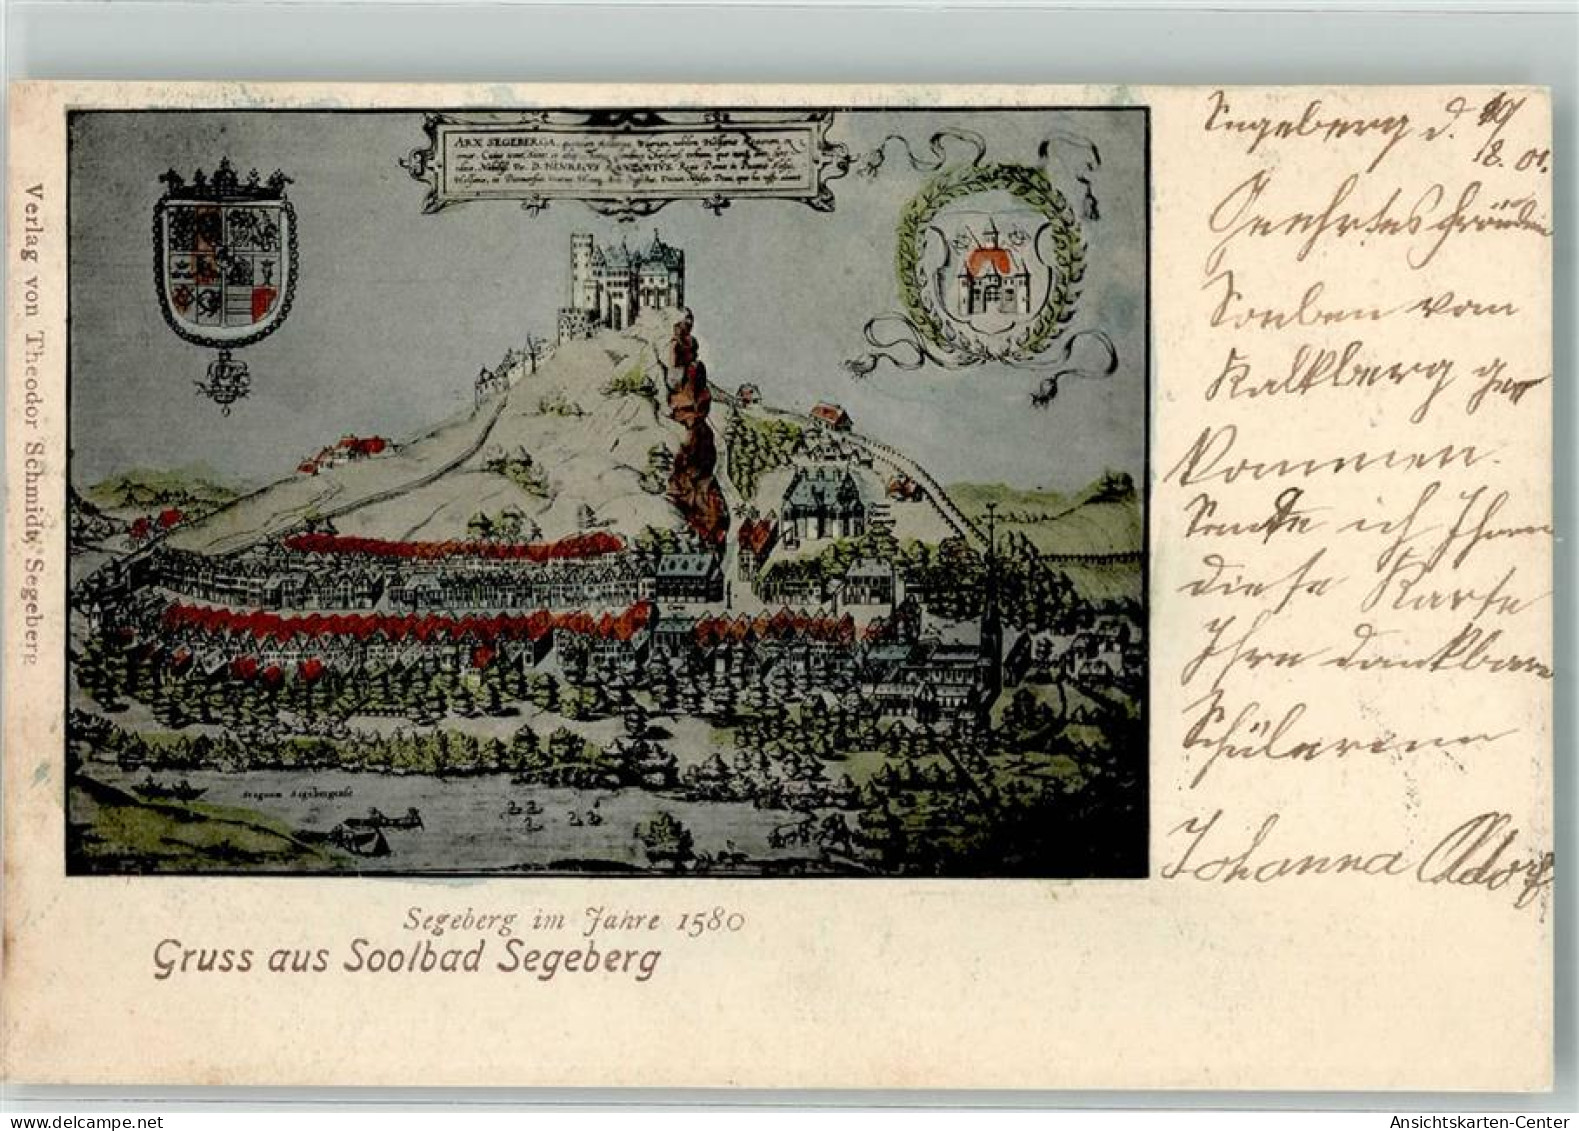 Verlag von Theodor Schmidt, Segeberg
ARX SEGEBERGA
D. HENRICVS RANZOVIVS
Stagnum Segebergense
Segeberg im Jahre 1580
Gruss aus Soolbad Segeberg
Segeberg d. 19/
8. 01.
Geehrtes Fräulein
Soeben vom
Kalkberg ge
kommen.
Sende ich Ihnen
diese Karte
Ihre dankbare
Schülerinn
Johanna
delcampe.net
Ansichtskarten-Center